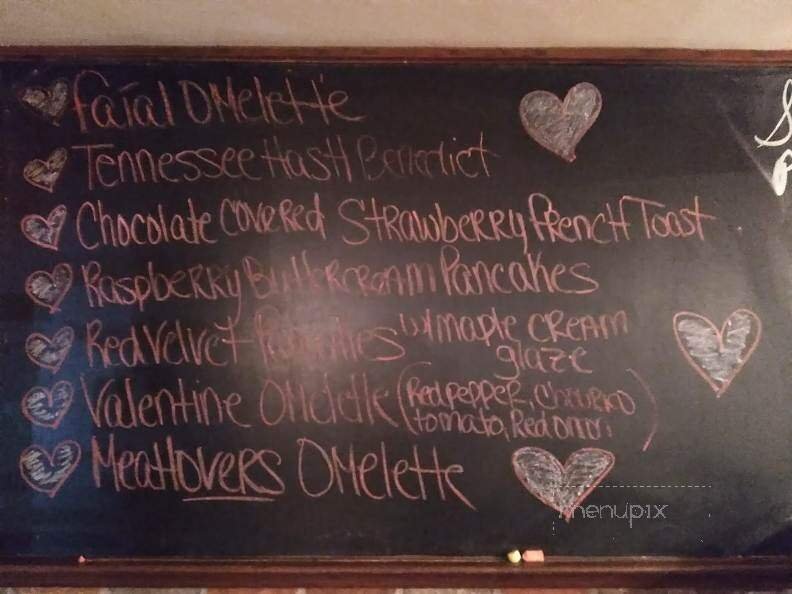 Faial OMelette
Tennessee HasH Benedict
Chocolate coveRed StRawbeRRy FRencH Toast
RaspbeRRy ButteRcReam Pancakes
Red Velvet Pancakes w/ maple cReam
glaze
Valentine OMelette (Red pepper, Chourico
tomato, Red onion)
Meat lovers OMelette
menupix